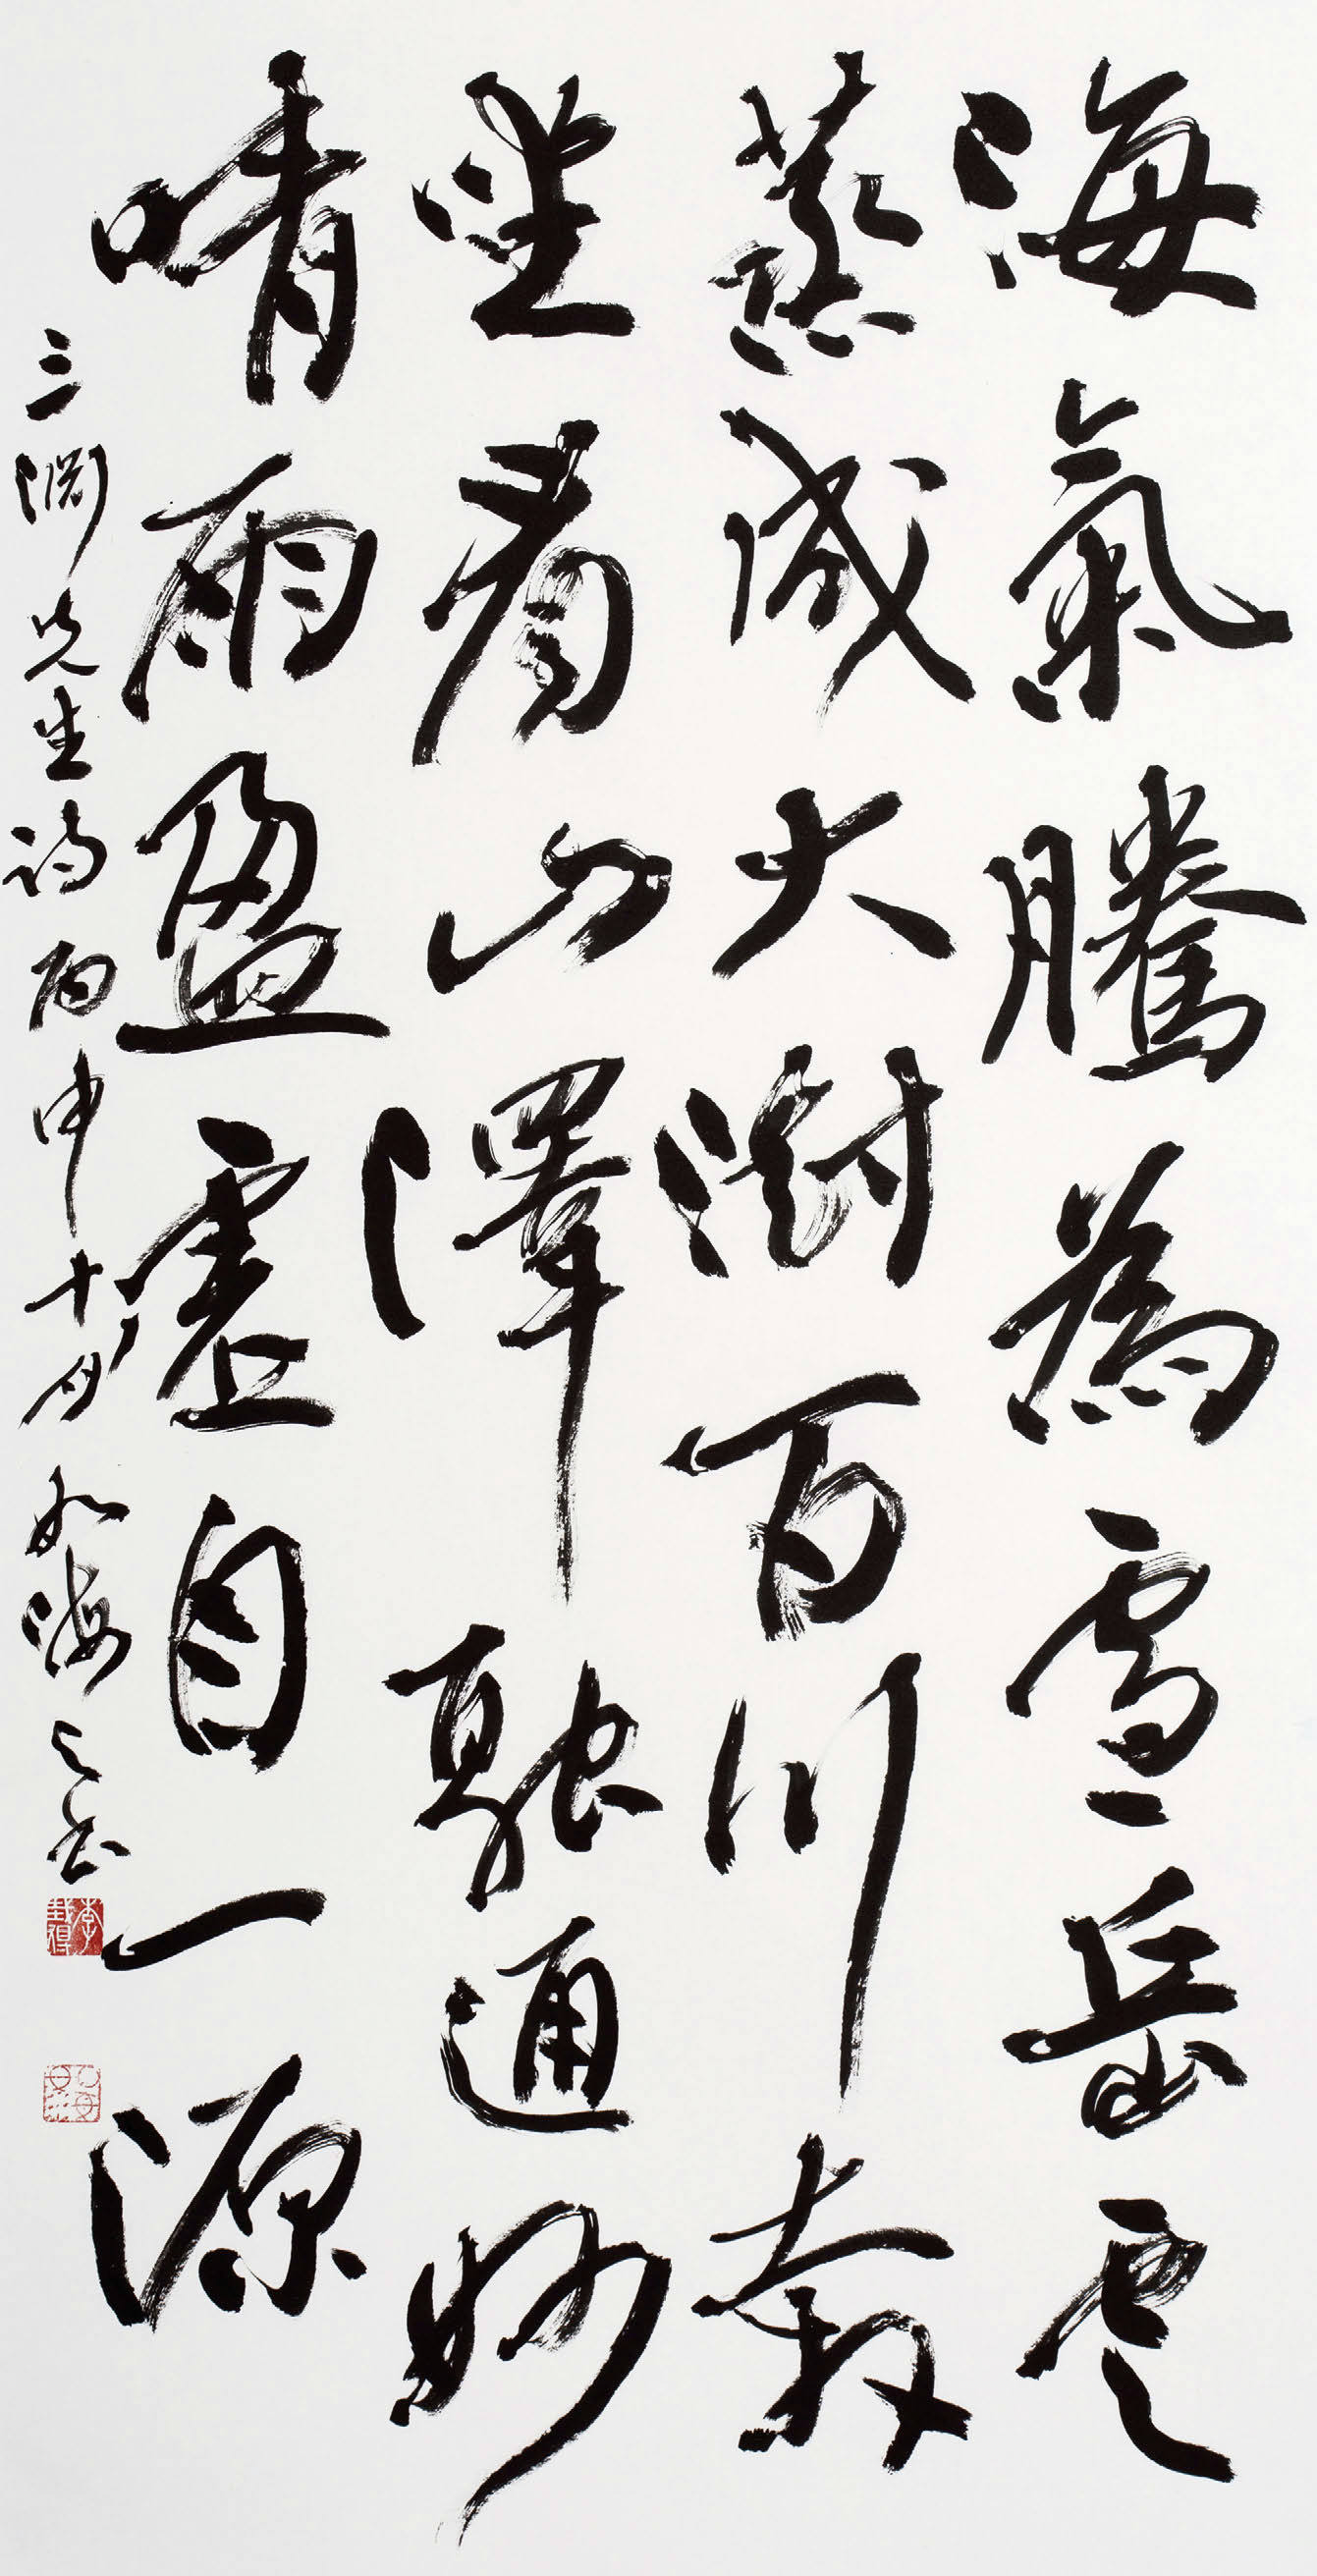 海氣騰為雪岳雲
蒸成大澍百川奔
坐看山澤融通妙
晴雨盈虛自一源
三渊先生詩丙申十月如海之書